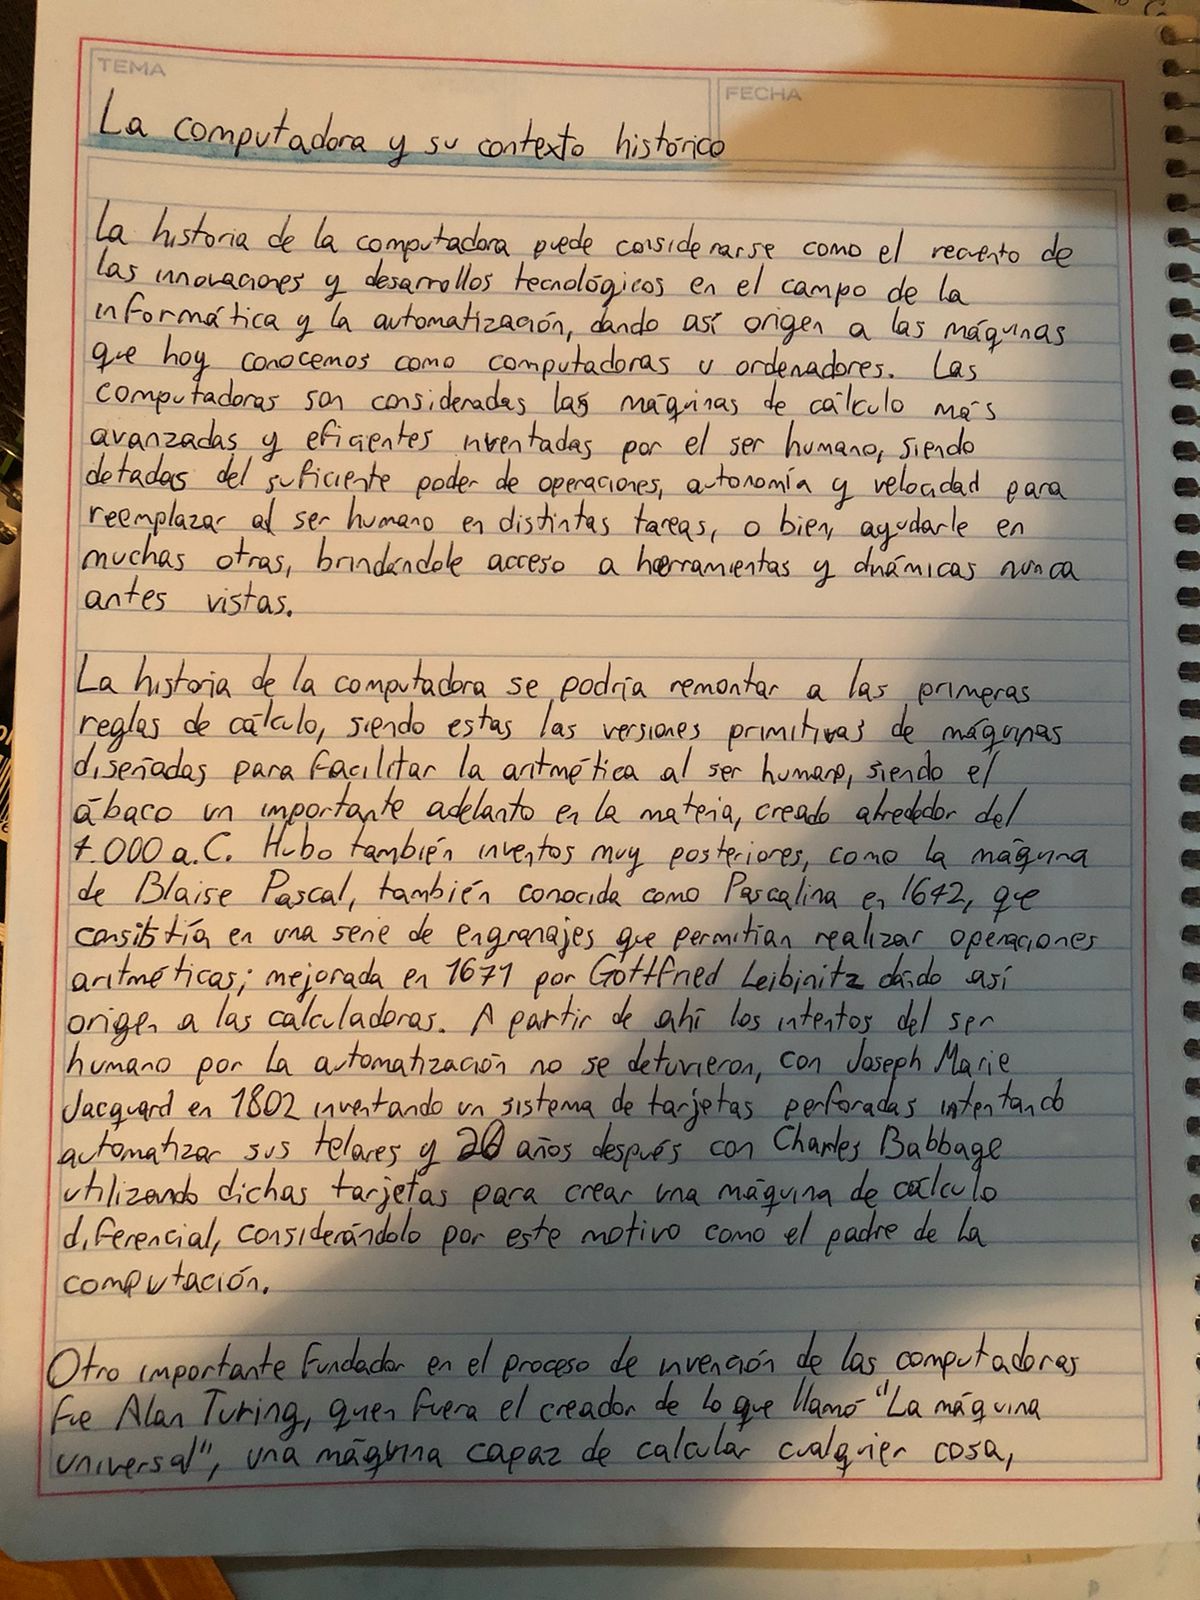 TEMA
FECHA
La computadora y su contexto histórico
La historia de la computadora puede considerarse como el recuento de
las innovaciones y desarrollos tecnológicos en el campo de la
informática y la automatización, dando así origen a las máquinas
que hoy conocemos como computadoras u ordenadores. Las
computadoras son consideradas las máquinas de cálculo más
avanzadas y eficientes inventadas por el ser humano, siendo
dotadas del suficiente poder de operaciones, autonomía y velocidad para
reemplazar al ser humano en distintas tareas, o bien, ayudarle en
muchas otras, brindándole acceso a herramientas y dinámicas nunca
antes vistas.
La historia de la computadora se podría remontar a las primeras
reglas de cálculo, siendo estas las versiones primitivas de máquinas
diseñadas para facilitar la aritmética al ser humano, siendo el
ábaco un importante adelanto en la materia, creado alrededor del
4.000 a.C. Hubo también inventos muy posteriores, como la máquina
de Blaise Pascal, también conocida como Pascalina en 1642, que
consistía en una serie de engranajes que permitían realizar operaciones
aritméticas; mejorada en 1671 por Gottfried Leibinitz dando así
origen a las calculadoras. A partir de ahí los intentos del ser
humano por la automatización no se detuvieron, con Joseph Marie
Jacquard en 1802 inventando un sistema de tarjetas perforadas intentando
automatizar sus telares y 20 años después con Charles Babbage
utilizando dichas tarjetas para crear una máquina de cálculo
diferencial, considerándolo por este motivo como el padre de la
computación.
Otro importante fundador en el proceso de invención de las computadoras
fue Alan Turing, quien fuera el creador de lo que llamó "La máquina
universal", una máquina capaz de calcular cualquier cosa,